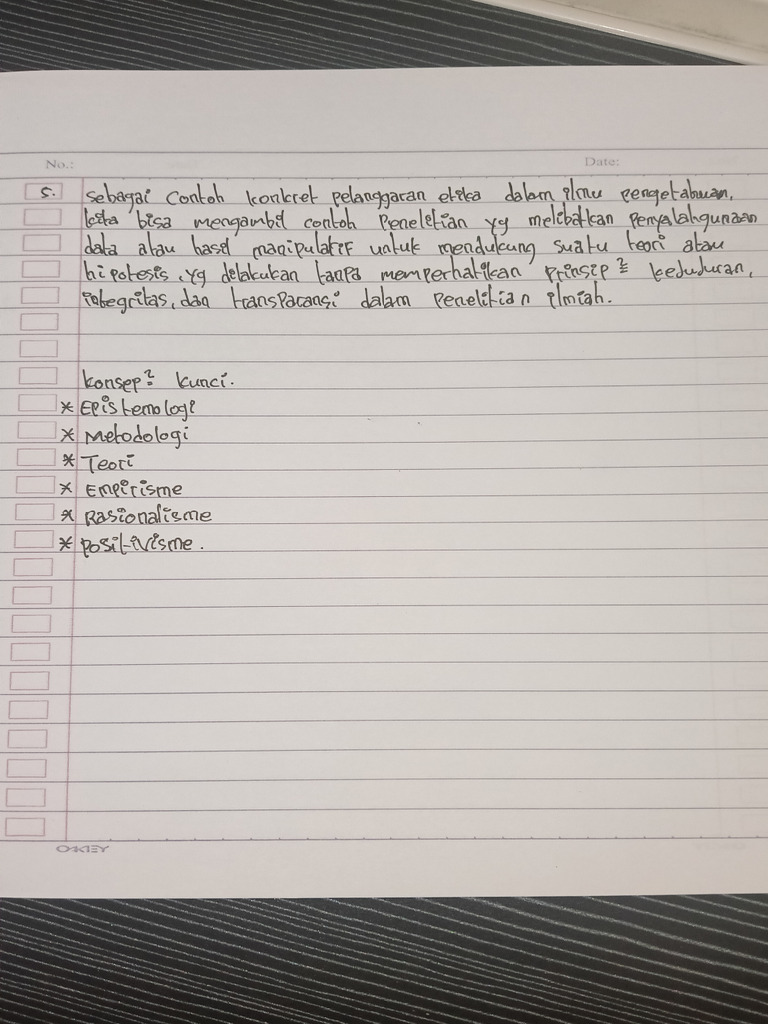 No.: Date:
5. sebagai contoh konkret pelanggaran etika dalam ilmu pengetahuan,
kita bisa mengambil contoh Peneletian yg melibatkan Penyalahgunaan
data atau hasil manipulatif untuk mendukung suatu teori atau
hipotesis, yg delakukan tanpa memperhatikan Prinsip² kedujuran,
integritas, dan transparansi dalam penelitian ilmiah.
konsep² kunci.
* Epistemologi
* Metodologi
* Teori
* Empirisme
* Rasionalisme
* positivisme.
OKEY